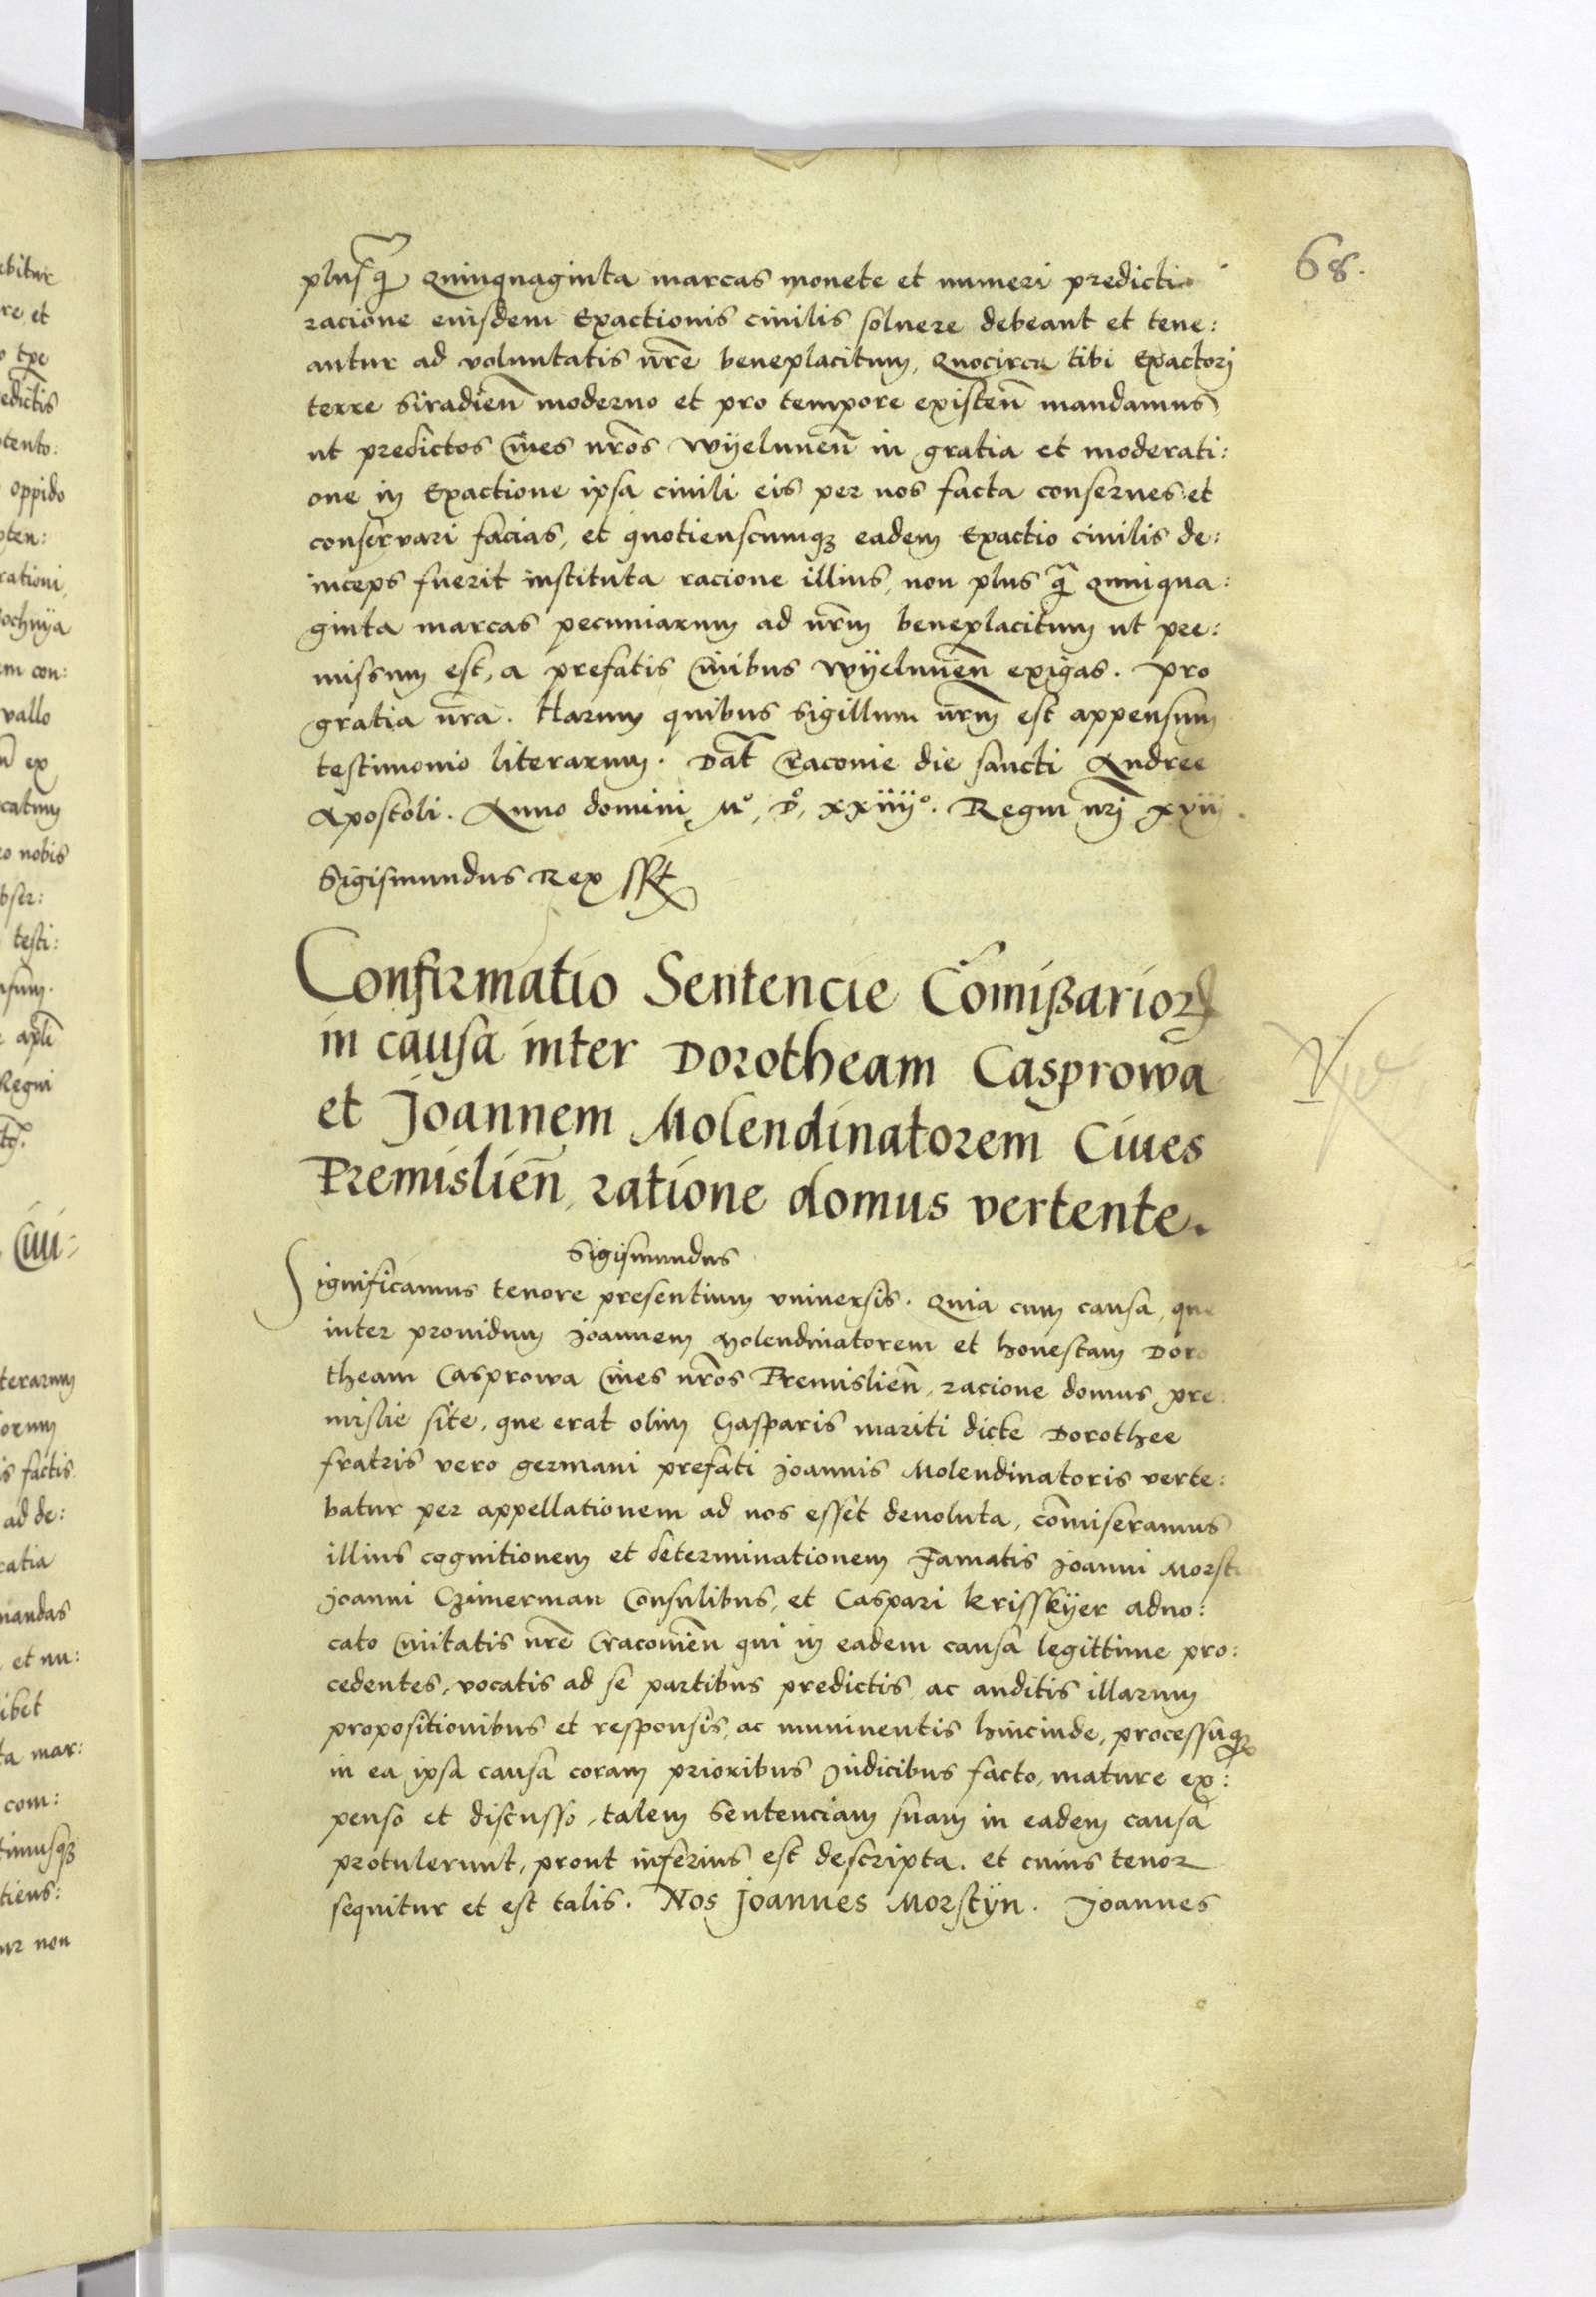 68.
plusq̃ Quinquaginta marcas monete et numeri predicti
racione eiusdem Exactionis ciuilis soluere debeant et tene:
antur ad voluntatis nr̃e beneplacitum, Quocirca tibi Exactori
terre Siradień moderno et pro tempore existeñ mandamus
ut predictos Ciues nr̃os Wyelunen̄ in gratia et moderati:
one in Exactione ipsa ciuili eis per nos facta conserues et
conservari facias, et quotienscumqꝫ eadem Exactio ciuilis de:
inceps fuerit instituta racione illius, non plus q̃ Quinqua:
ginta marcas pecuniarum ad nr̃m beneplacitum ut pre:
missum est, a prefatis Ciuibus Wyelunen̄ exigas. Pro
gratia nr̃a. Harum quibus Sigillum nr̃m est appensum
testimonio literarum. Dat̃ Cracouie die sancti Andree
Apostoli. Anno domini M°, D°, xxiiij°. Regni nr̃j xviij.
Sigismundus Rex sst
Confirmatio Sentencie Com̃ißarioꝝ
in causa inter Dorotheam Casprowa
et Joannem Molendinatorem Ciues
Premislien̄, ratione domus vertente.
Sigismundus
Significamus tenore presentium vniuersis. Quia cum causa, que
inter prouidum Joannem Molendinatorem et honestam Doro
theam Casprowa Ciues nr̃os Premislien̄, racione domus pre:
mislie site, que erat olim Gasparis mariti dicte Dorothee
fratris vero germani prefati Joannis Molendinatoris verte:
batur per appellationem ad nos esset deuoluta, com̃iseramus
illius cognitionem et determinationem Famatis Joanni Morst
Joanni Czimerman Consulibus, et Caspari Krisskyer aduo:
cato Ciuitatis nr̃e Cracouien̄ qui in eadem causa legittime pro:
cedentes, vocatis ad se partibus predictis ac auditis illarum
propositionibus et responsis, ac munimentis hincinde, processuqꝫ
in ea ipsa causa coram prioribus Judicibus facto, mature ex:
penso et discusso, talem Sentenciam suam in eadem causa
protulerunt, prout inferius est descripta. et cuius tenor
sequitur et est talis. Nos Joannes Morstyn. Joannes